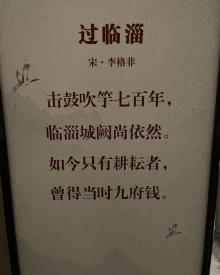 过临淄
宋·李格非
击鼓吹竽七百年，
临淄城阙尚依然。
如今只有耕耘者，
曾得当时九府钱。